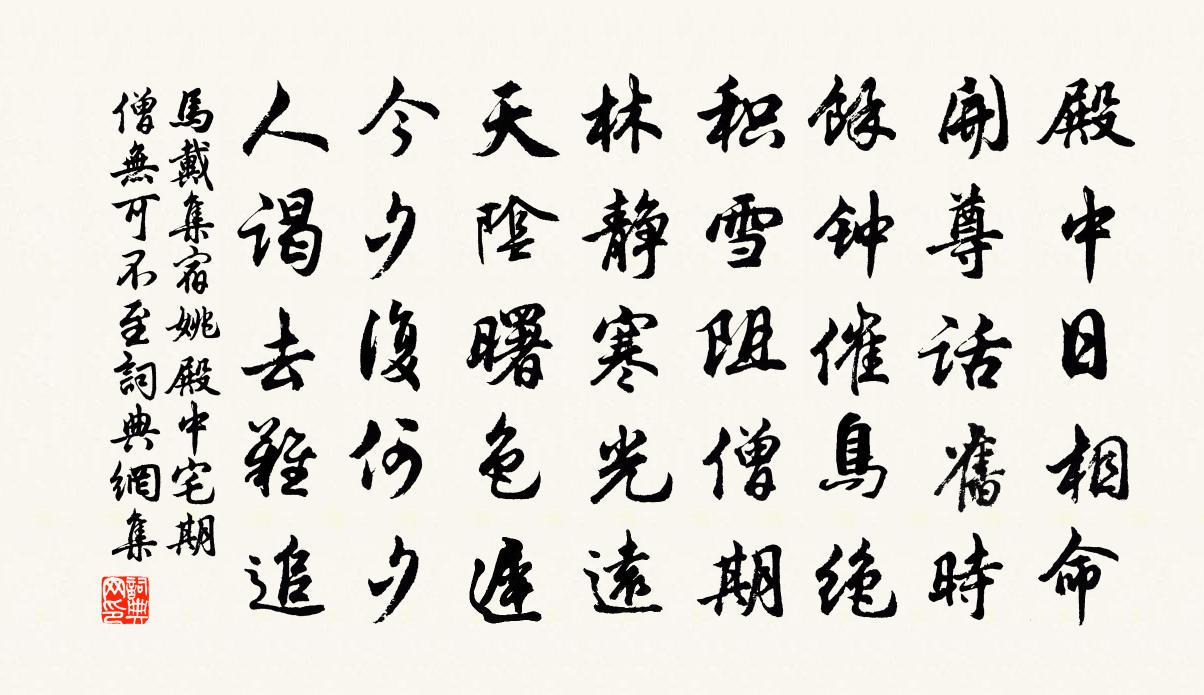 殿中日相命
開尊話舊時
餘钟催鳥絶
积雪阻僧期
林靜寒光遠
天陰曙色遲
今夕復何夕
人謁去難追
馬戴集宿姚殿中宅期
僧無可不至詞典網集
詞典
网印